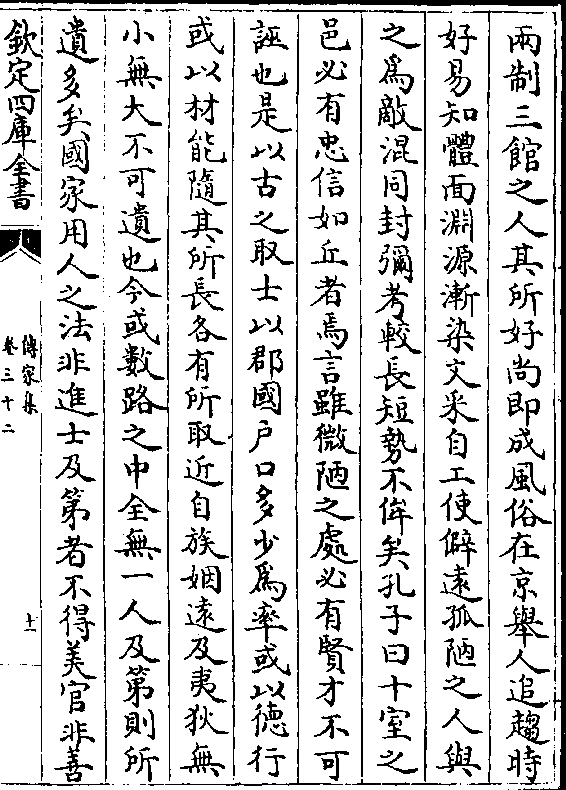 兩制三館之人其所好尚即成風俗在京舉人追趨時
好易知體面淵源漸染文采自工使僻遠孤陋之人與
之爲敵混同封彌考較長短勢不侔矣孔子曰十室之
邑必有忠信如丘者焉言雖微陋之處必有賢才不可
誣也是以古之取士以郡國户口多少爲率或以德行
或以材能隨其所長各有所取近自族姻遠及夷狄無
小無大不可遺也今或數路之中全無一人及第則所
遺多矣國家用人之法非進士及第者不得美官非善
欽定四庫全書
傳家集
卷三十二
十一